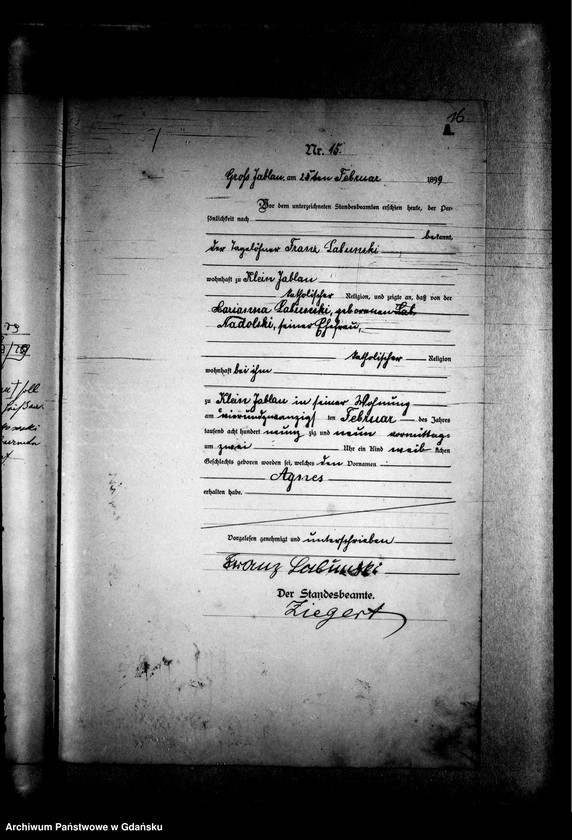 16
Nr. 15.
Groß Jablau, am 25ten Februar 1899
Vor dem unterzeichneten Standesbeamten erschien heute, der Per-
sönlichkeit nach
bekannt,
der Tagelöhner Franz Labunski
wohnhaft zu Klein Jablau
katholischer Religion, und zeigte an, daß von der
Marianna Labunski, geborenen Lab
Nadolski, seiner Ehefrau,
katholischer Religion
wohnhaft bei ihm
zu Klein Jablau in seiner Wohnung
am vierundzwanzig ten Februar des Jahres
tausend acht hundert neunzig und neun vormittags
um zwei Uhr ein Kind weiblichen
Geschlechts geboren worden sei, welches den Vornamen
Agnes
erhalten habe.
Vorgelesen genehmigt und unterschrieben
Franz Labunski
Der Standesbeamte.
Ziegert
Archiwum Państwowe w Gdańsku